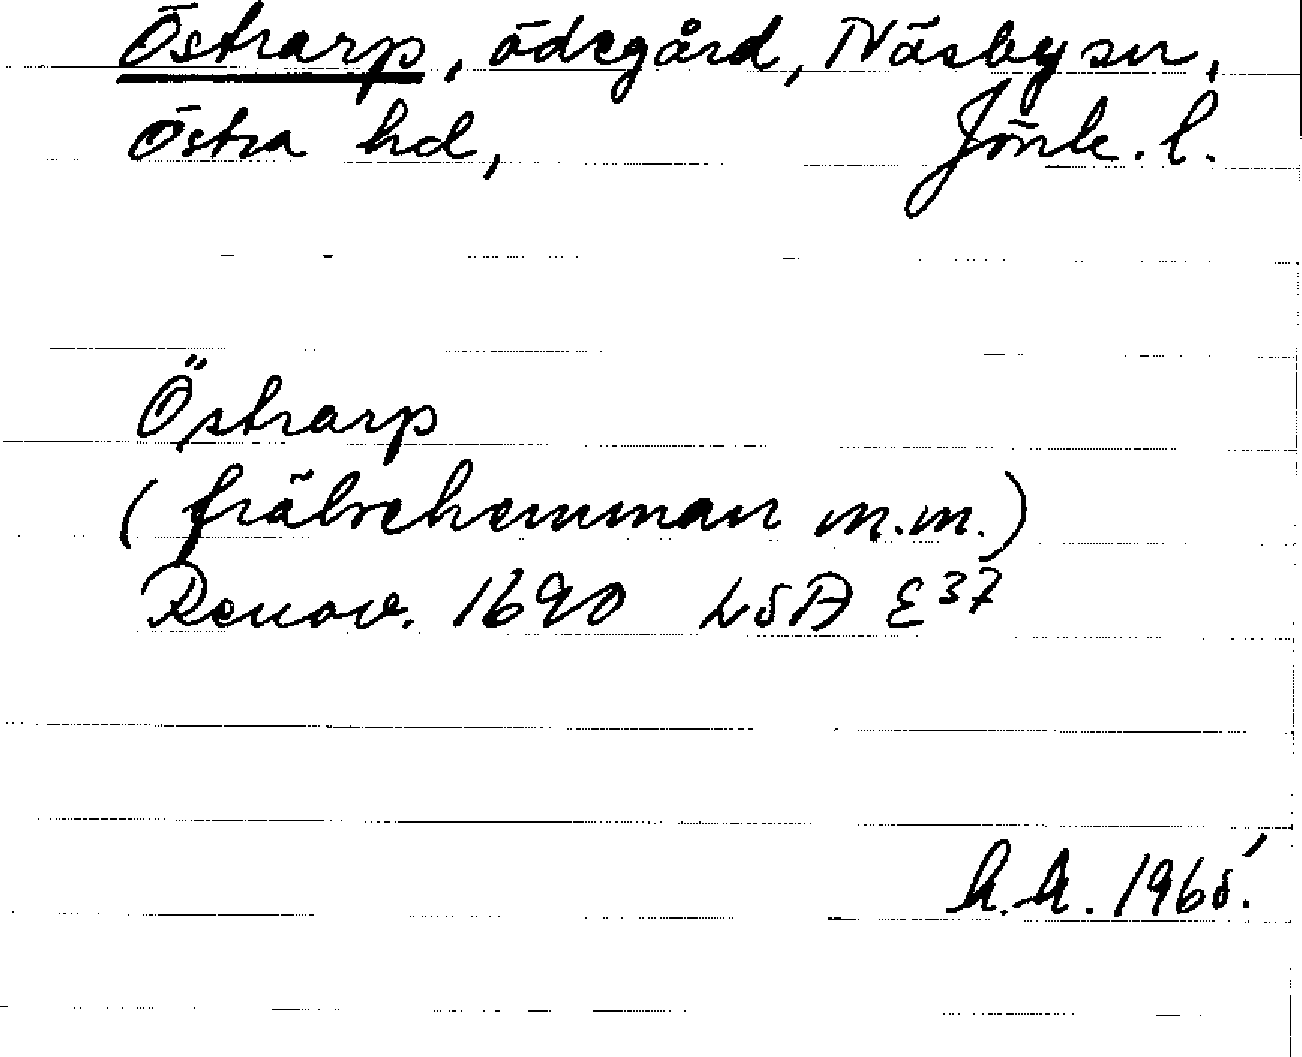 Östrarp, ödegård, Näsby sn,
Östra hd, Jönk. l.
Östrarp
(frälsehemman m.m.)
Renov. 1690 LSA E37
1965.